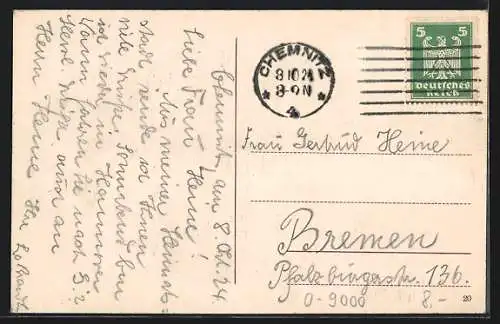 Chemnitz, am 8. Okt. 24.
Liebe Frau Heine!
Aus meiner Heimat-
stadt sende ich Ihnen
viele Grüße. Sonnabend bin
ich wieder in Hannover.
Wann fahren Sie nach
Grüße auch an
Herrn Heine Ihr
CHEMNITZ
8.10.24
8-9N
* 4 *
5 5
Deutsches
Reich
Frau Gertrud Heine
Bremen
Pfalzburgerstr. 136.
0-9000 8.-
20